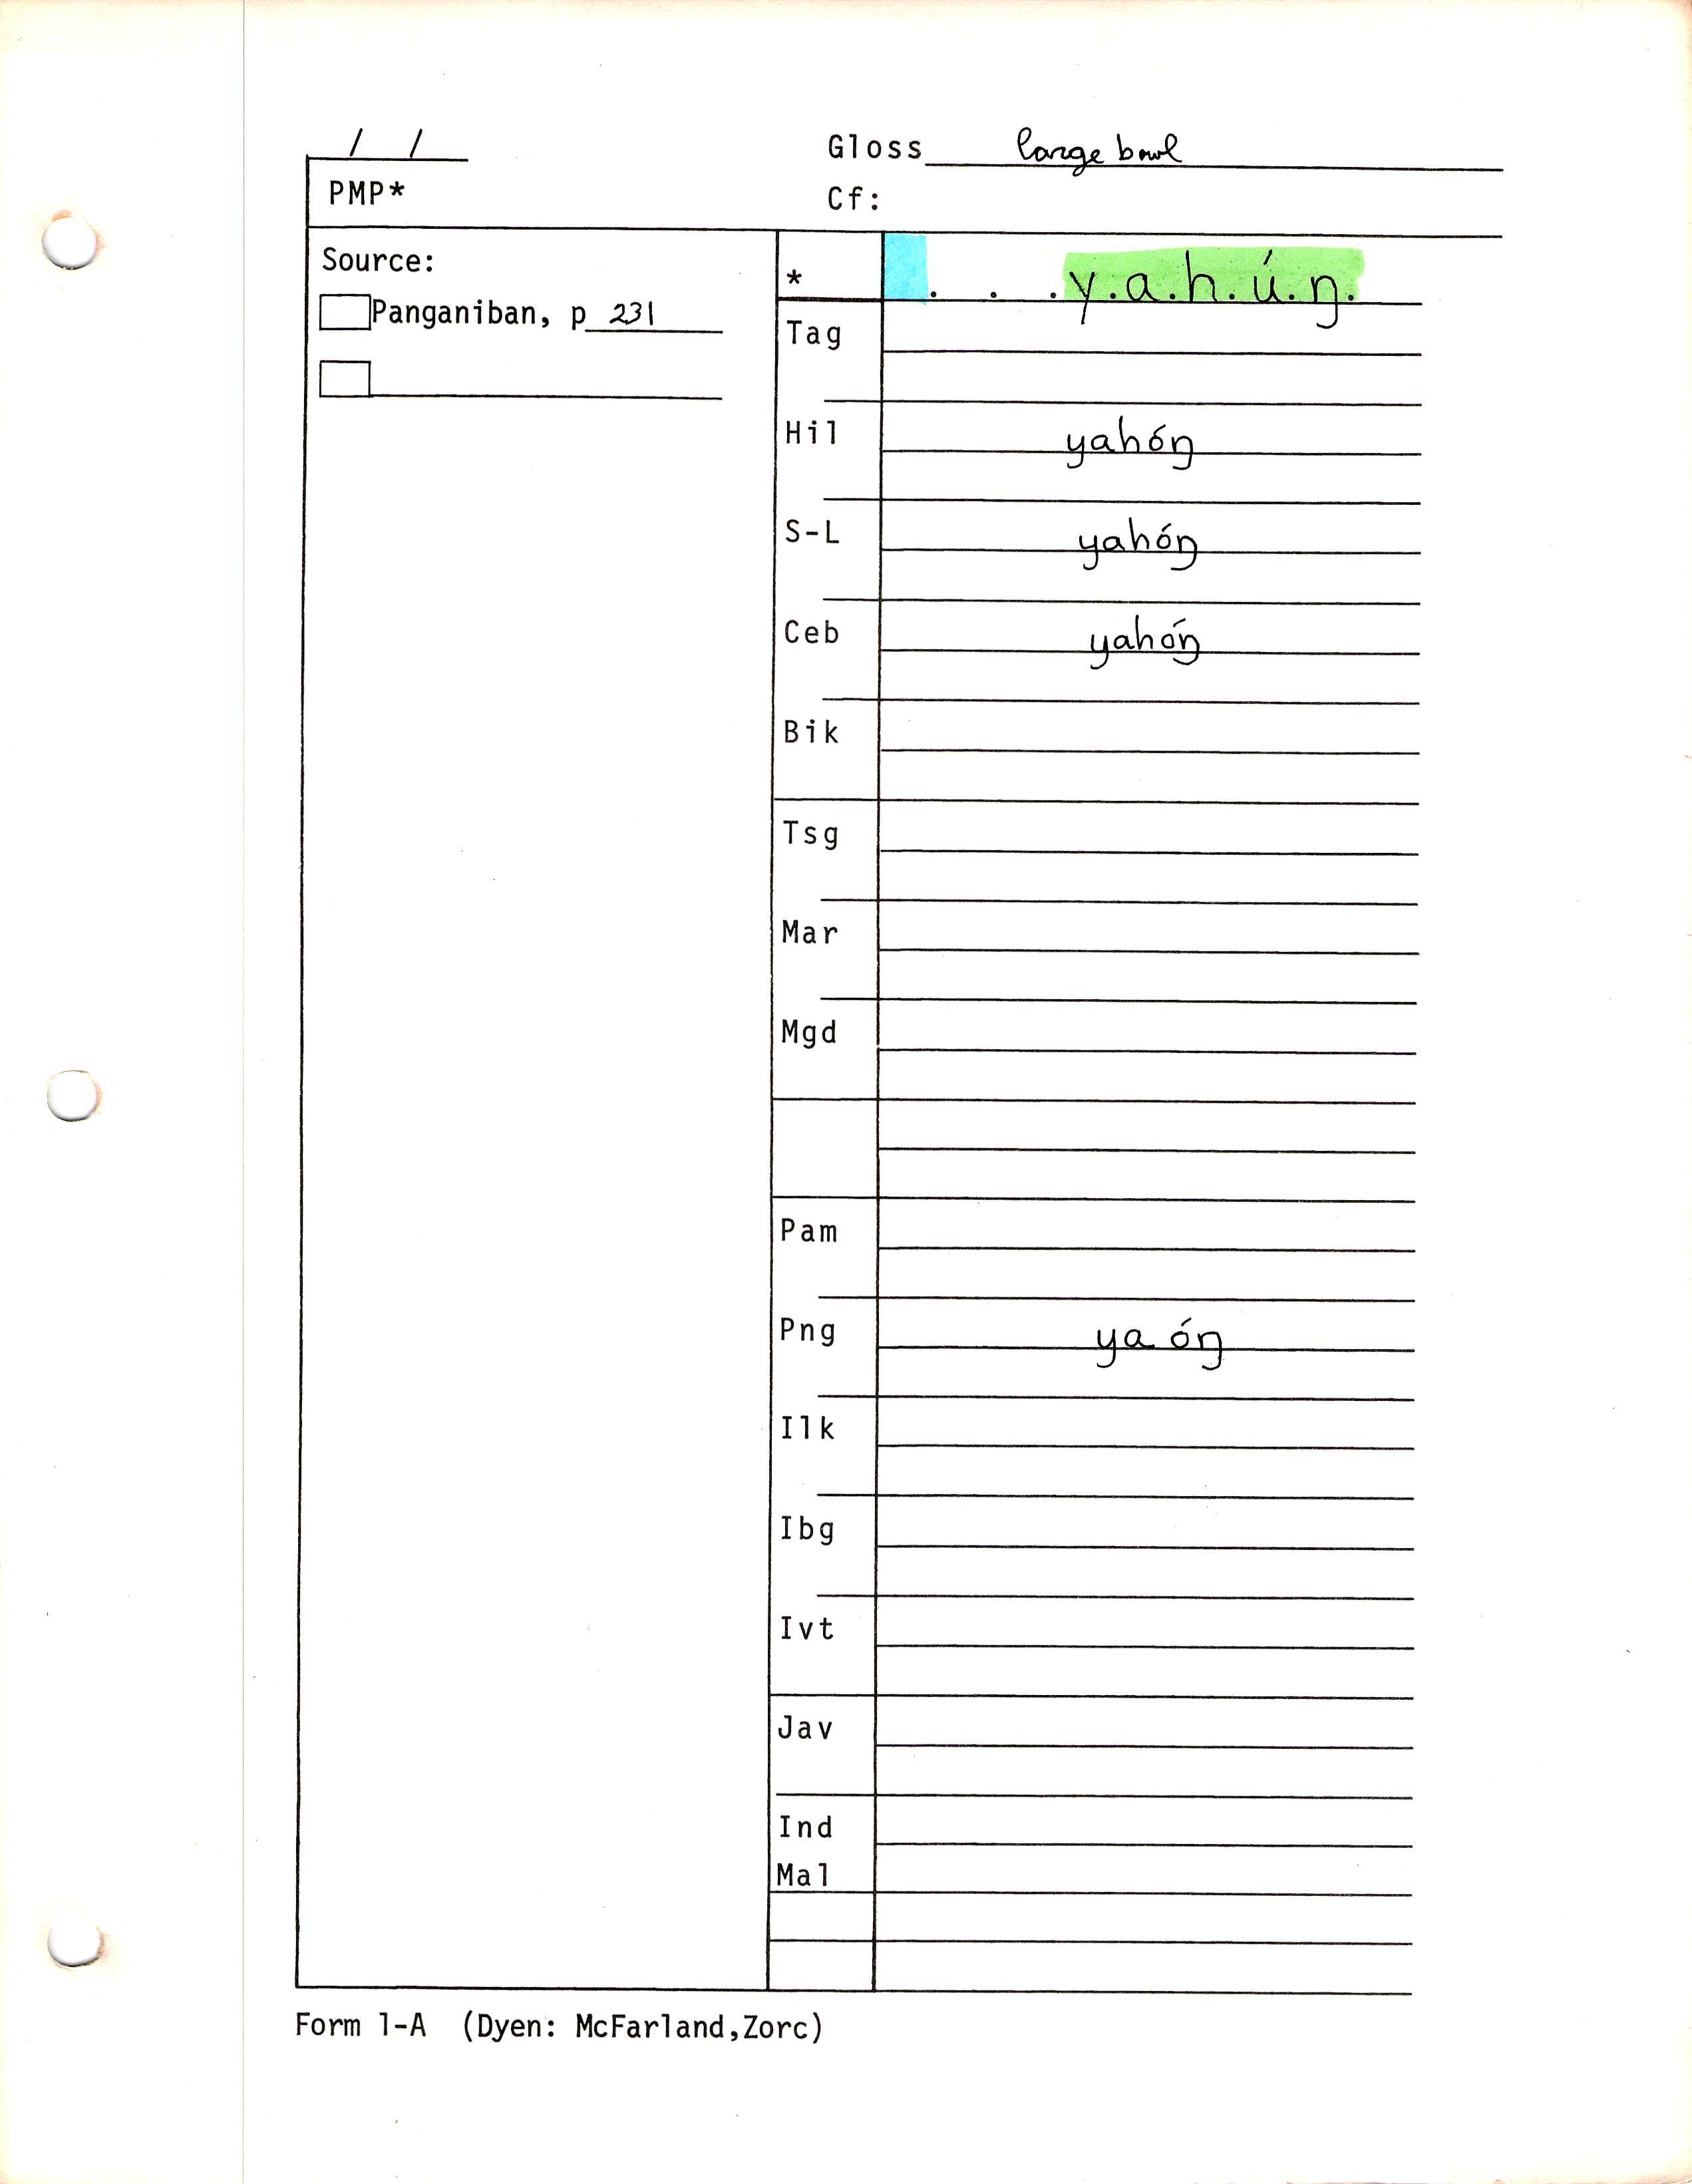 / /
Gloss large bowl
PMP*
Cf:
Source:
* . . . y.a.h.ú.ŋ.
Panganiban, p 231
Tag
Hil yahóŋ
S-L yahóŋ
Ceb yahóŋ
Bik
Tsg
Mar
Mgd
Pam
Png ya óŋ
Ilk
Ibg
Ivt
Jav
Ind
Mal
Form 1-A (Dyen: McFarland,Zorc)